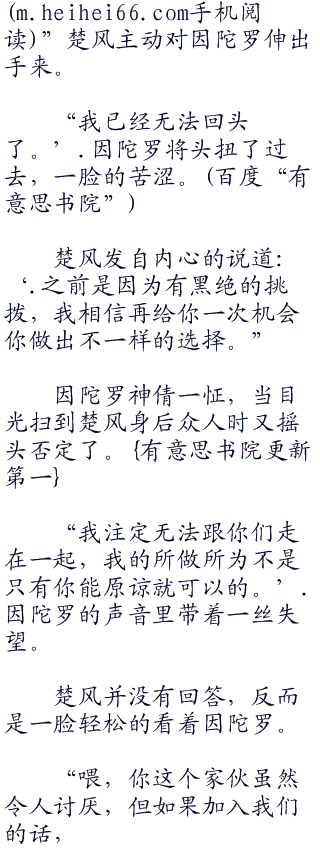 (m.heihei66.com手机阅
读)”楚风主动对因陀罗伸出
手来。
“我已经无法回头
了。’.因陀罗将头扭了过
去，一脸的苦涩。(百度“有
意思书院”)
楚风发自内心的说道:
‘.之前是因为有黑绝的挑
拨，我相信再给你一次机会
你做出不一样的选择。”
因陀罗神倩一怔，当目
光扫到楚风身后众人时又摇
头否定了。{有意思书院更新
第一}
“我注定无法跟你们走
在一起，我的所做所为不是
只有你能原谅就可以的。’.
因陀罗的声音里带着一丝失
望。
楚风并没有回答，反而
是一脸轻松的看着因陀罗。
“喂，你这个家伙虽然
令人讨厌，但如果加入我们
的话，